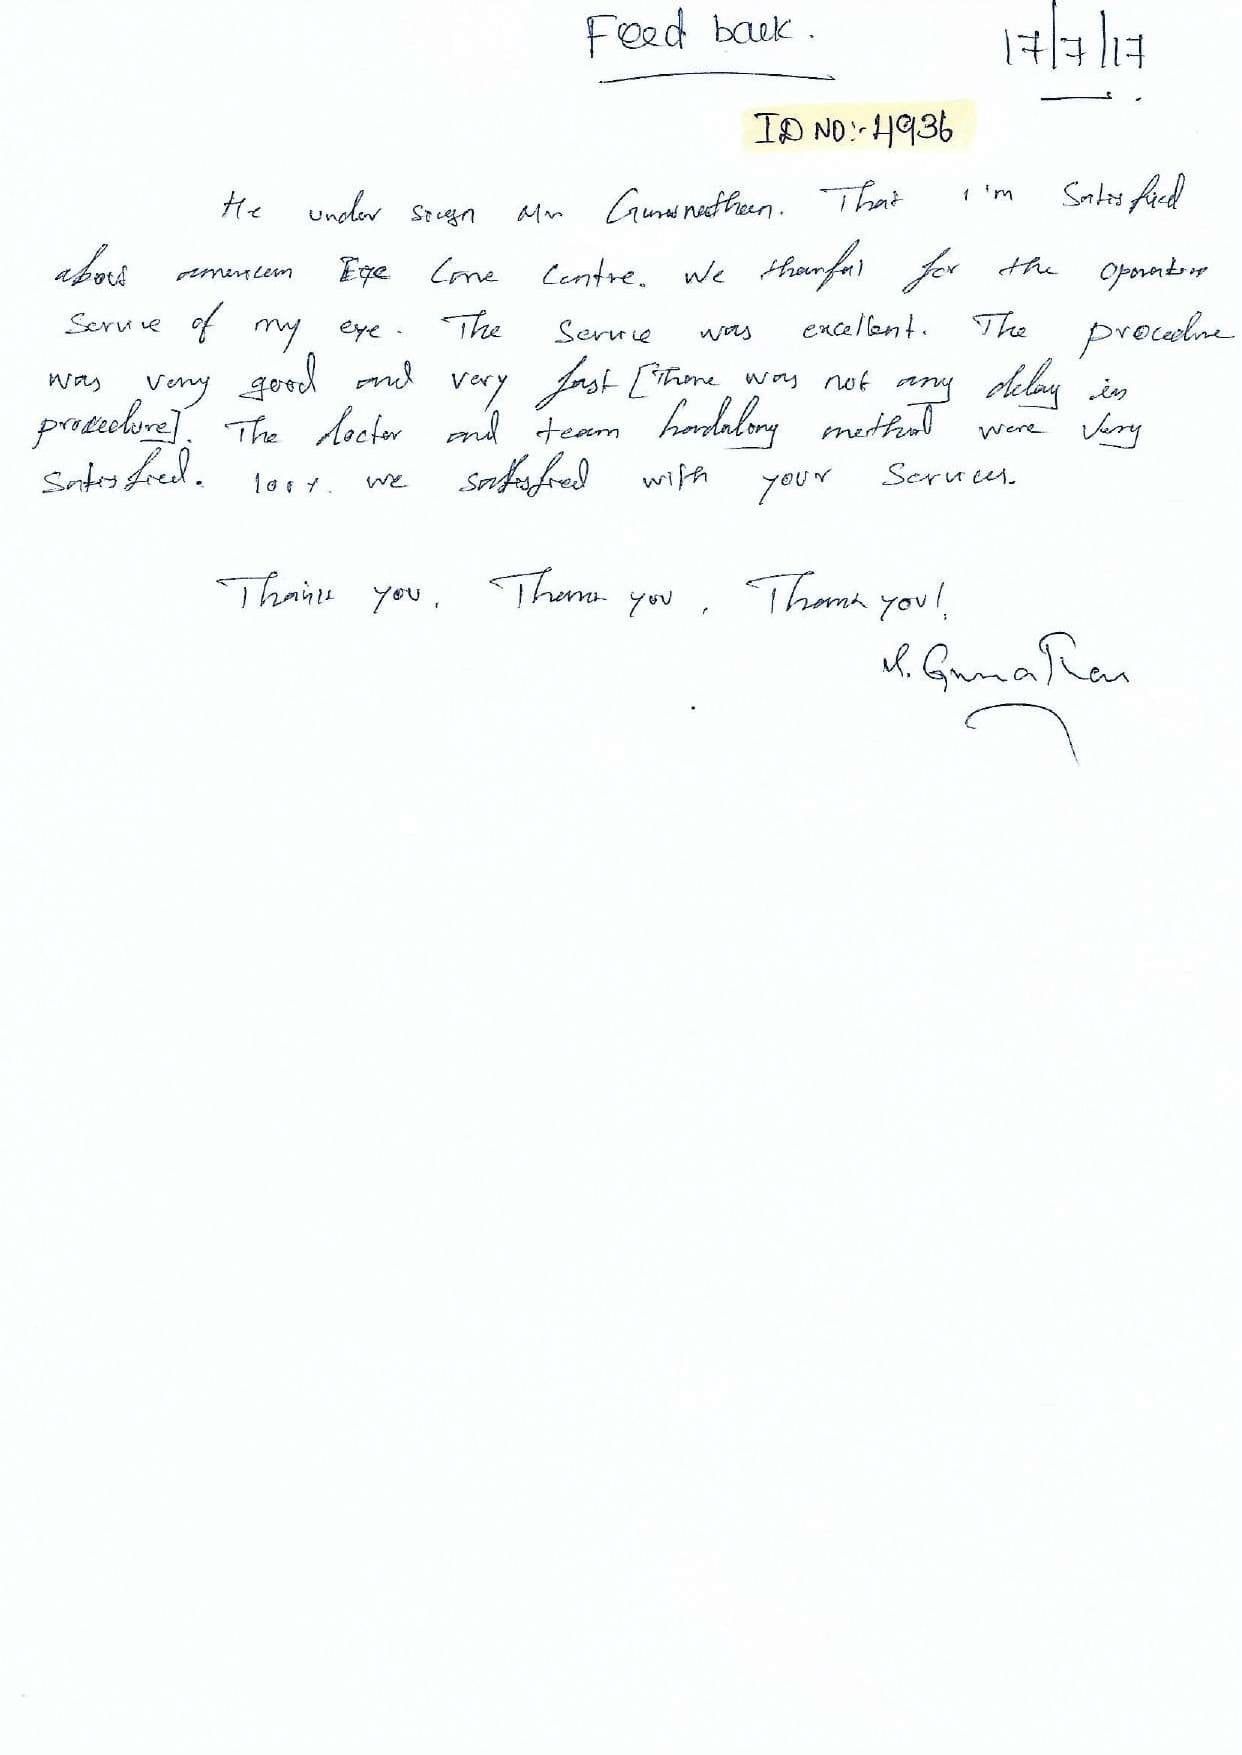 Feed back.
17/7/17
ID NO:- 4936
He under sign Mr Gunanathan. That I'm Satisfied
about american Eye Care Centre. We thankful for the operation
Service of my eye. The Service was excellent. The procedure
was very good and very fast [There was not any delay in
procedure]. The doctor and team method were very
Satisfied. 100%. we satisfied with your Services.
Thank you, Thank you, Thank you!